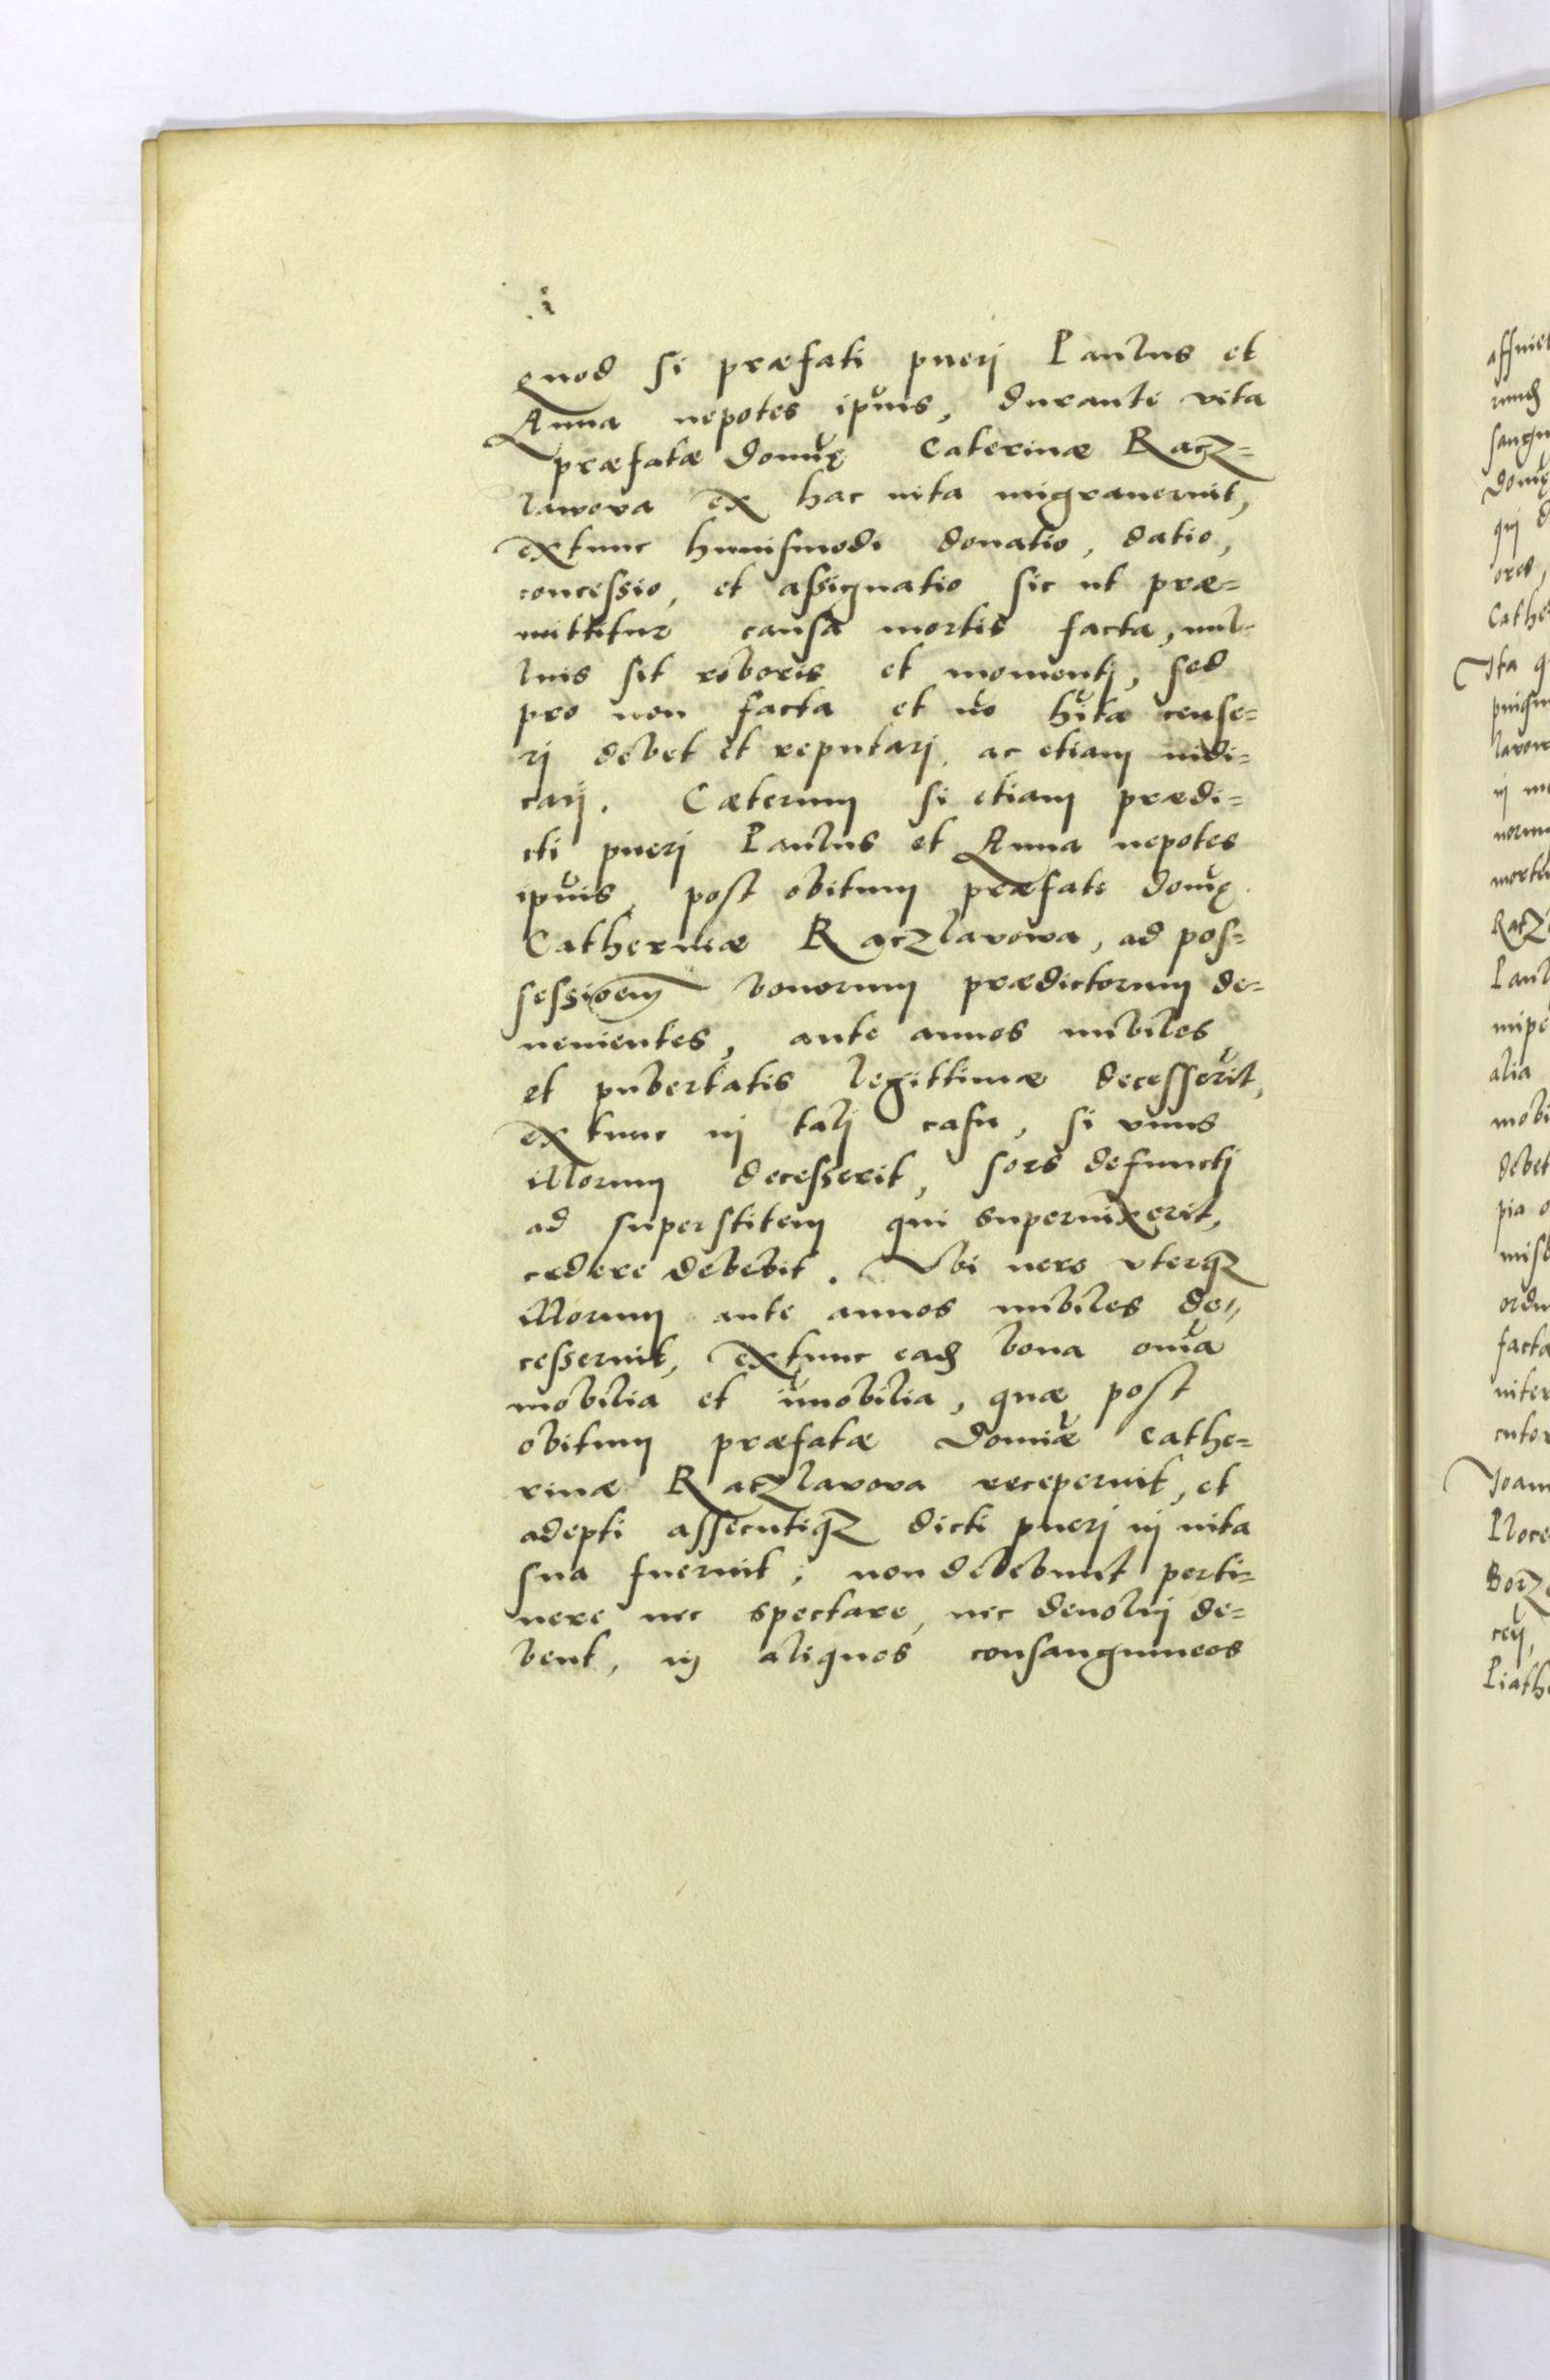 quod si præfati puerj Paulus et
Anna nepotes ip̃ius, durante vita
præfatæ Domĩę Caterinæ Racz=
lawova ex hac uita migrauerint,
extunc huiusmodi donatio, datio,
concessio, et assignatio sic ut præ=
mittitur causa mortis facta, nul-
lius sit roboris et momentj, sed
pro non facta et nõ hĩta cense=
rj debet et reputarj, ac etiam iudi=
carj. Cæterum si etiam prædi=
cti puerj Paulus et Anna nepotes
ip̃ius, post obitum præfate domĩę
Catherinæ Raczlavowa, ad pos=
sessioem̃ bonorum prædictorum de=
uenientes, ante annos nubiles
et pubertatis legittimæ decesserĩt,
extunc in talj casu, si vnus
illorum decesserit, sors defunctj
ad superstitem qui superuixerit,
cedere debebit. Vbi uero vterqꝫ
illorum ante annos nubiles de=
cesserint, extunc ead bona om̃ia
mobilia et im̃obilia, quæ post
obitum præfatæ Domĩæ Cathe=
rinæ Raczlavova receperint, et
adepti assecutiqꝫ dicti puerj in uita
sua fuerint, non debebunt perti=
nere nec spectare, nec deuoluj de=
bent, in aliquos consanguineos